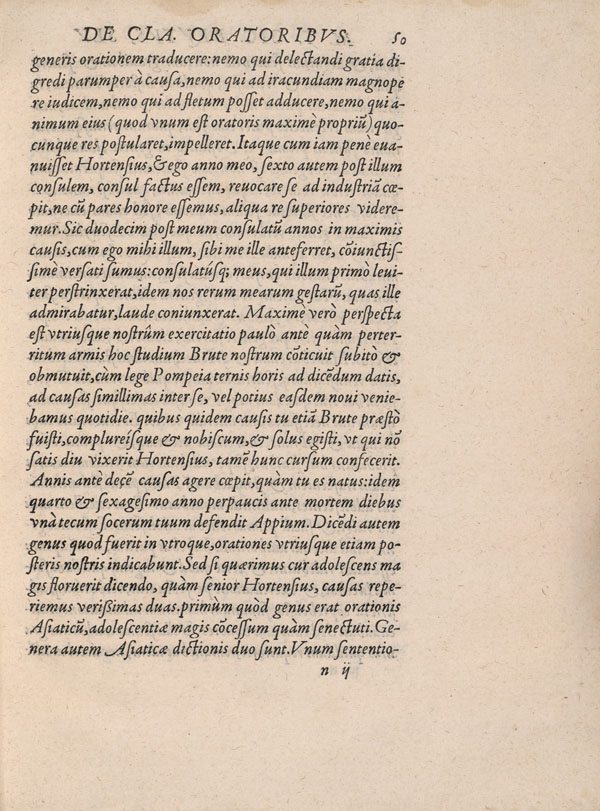 DE CLA. ORATORIBVS. 50
generis orationem traducere: nemo qui delectandi gratia di-
gredi parumper à causa, nemo qui ad iracundiam magnope
re iudicem, nemo qui ad fletum posset adducere, nemo qui a-
nimum eius (quod vnum est oratoris maximè propriũ) quo-
cunque res postularet, impelleret. Itaque cum iam penè eua-
nuisset Hortensius, & ego anno meo, sexto autem post illum
consulem, consul factus essem, reuocare se ad industriã cœ-
pit, ne cũ pares honore essemus, aliqua re superiores videre-
mur. Sic duodecim post meum consulatũ annos in maximis
causis, cum ego mihi illum, sibi me ille anteferret, cõiunctis-
simè versati sumus: consulatúsq; meus, qui illum primò leui-
ter perstrinxerat, idem nos rerum mearum gestarũ, quas ille
admirabatur, laude coniunxerat. Maximè verò perspecta
est vtriusque nostrûm exercitatio paulò antè quàm perter-
ritum armis hoc studium Brute nostrum cõticuit subitò &
obmutuit, cùm lege Pompeia ternis horis ad dicẽdum datis,
ad causas simillimas inter se, vel potius easdem noui venie-
bamus quotidie. quibus quidem causis tu etiã Brute præstò
fuisti, complureísque & nobiscum, & solus egisti, vt qui nõ
satis diu vixerit Hortensius, tamẽ hunc cursum confecerit.
Annis antè decẽ causas agere cœpit, quàm tu es natus: idem
quarto & sexagesimo anno perpaucis ante mortem diebus
vnà tecum socerum tuum defendit Appium. Dicẽdi autem
genus quod fuerit in vtroque, orationes vtriusque etiam po-
steris nostris indicabunt. Sed si quærimus cur adolescens ma
gis floruerit dicendo, quàm senior Hortensius, causas repe-
riemus verissimas duas. primùm quòd genus erat orationis
Asiaticũ, adolescentiæ magis cõcessum quàm senectuti. Ge-
nera autem Asiaticæ dictionis duo sunt. Vnum sententio-
n ij